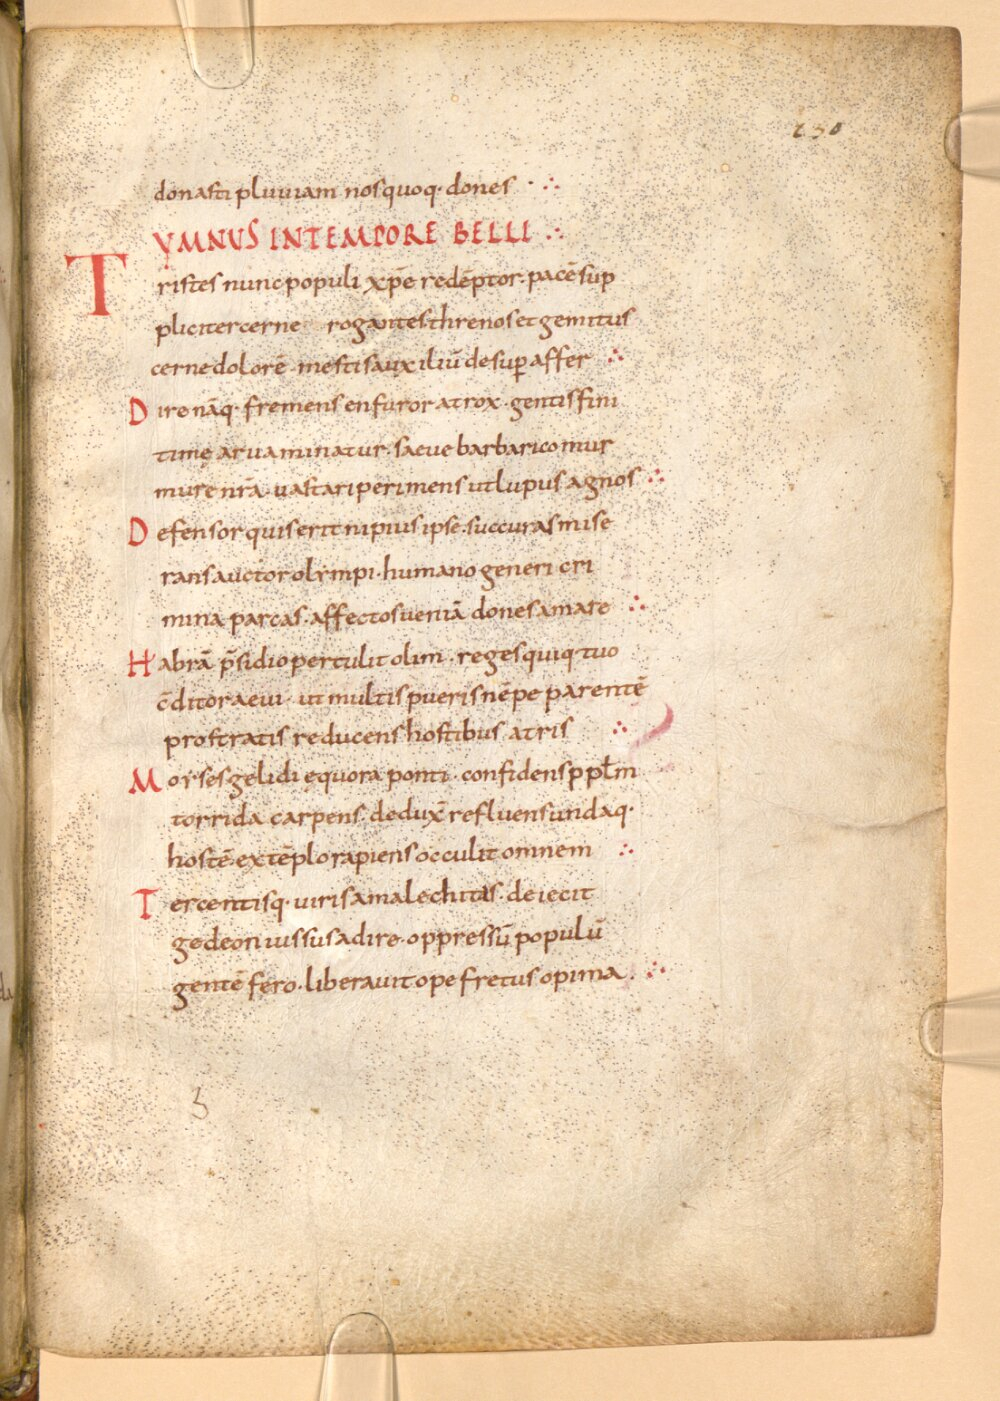 230
donasti pluuiam nos quoq· dones · ∴
YMNUS IN TEMPORE BELLI ∴
Tristes nunc populi xp̄e redēptor· pacē sup
pliciter cerne rogantes· threnos et gemitus
cerne dolorē· mestis auxiliū desup affer ∴
Dire nāq· fremens en furor atrox· gentis fini
timę arua minatur· saeue barbarico mur
mure nr̄a· uastari perimens ut lupus agnos ∴
Defensor quis erit ni pius ipse· succuras mise
rans auctor olympi· humano generi cri
mina parcas· affectos ueniā dones amare ∴
Habrā p̄sidio pertulit olim· reges quiq· tuo
c̄ditor aeui· ut multis pueris nēpe parentē
prostratis reducens hostibus atris ∴
Moyses gelidi equora ponti· confidens p ppl̄m
torrida carpens· dedux̄ refluens undaq·
hostē extēplo rapiens occulit omnem ∴
Tercentisq· uiris amalechitas· deiecit
gedeon iussus adire· oppressū populū
gente fero· liberauit ope fretus opima· ∴
3